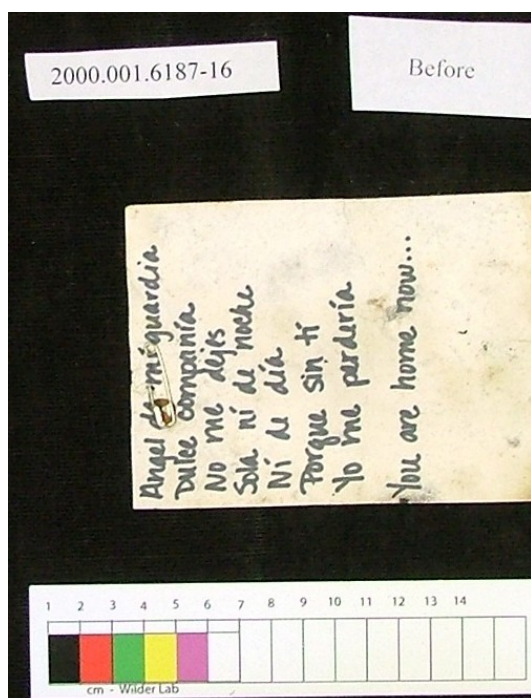 2000.001.6187-16
Before
Angel de mi guardia
Dulce compania
No me dejes
Sola ni de noche
Ni de día
Porque sin tí
Yo me perdería
You are home now...
1 2 3 4 5 6 7 8 9 10 11 12 13 14
cm - Wilder Lab